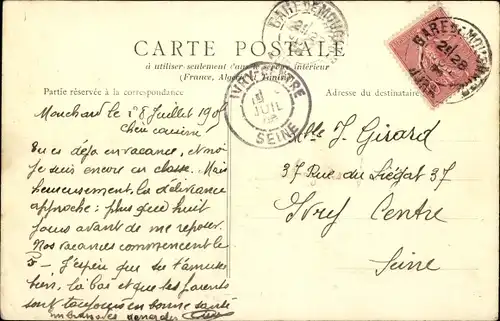 GARE DE MOUCHARD
CARTE POSTALE
à utiliser seulement dans le service intérieur
(France, Algérie et Tunisie)
Partie réservée à la correspondance
Adresse du destinataire
GARE DE MOUCHARD
JUIL
SEINE
Mouchard le 28 Juillet 190
Chère cousine
Tu es déja en vacance, et moi
je suis encore en classe. Mais
heureusement la délivrance
approche: plus que huit
jours avant de me reposer.
Nos vacances commencent le
5 - J'espère que tu t'amuses
bien, là bas et que tes parents
sont toujours en bonne santé
Mlle J. Girard
37 Rue du Liégat 37
Ivry Centre
Seine